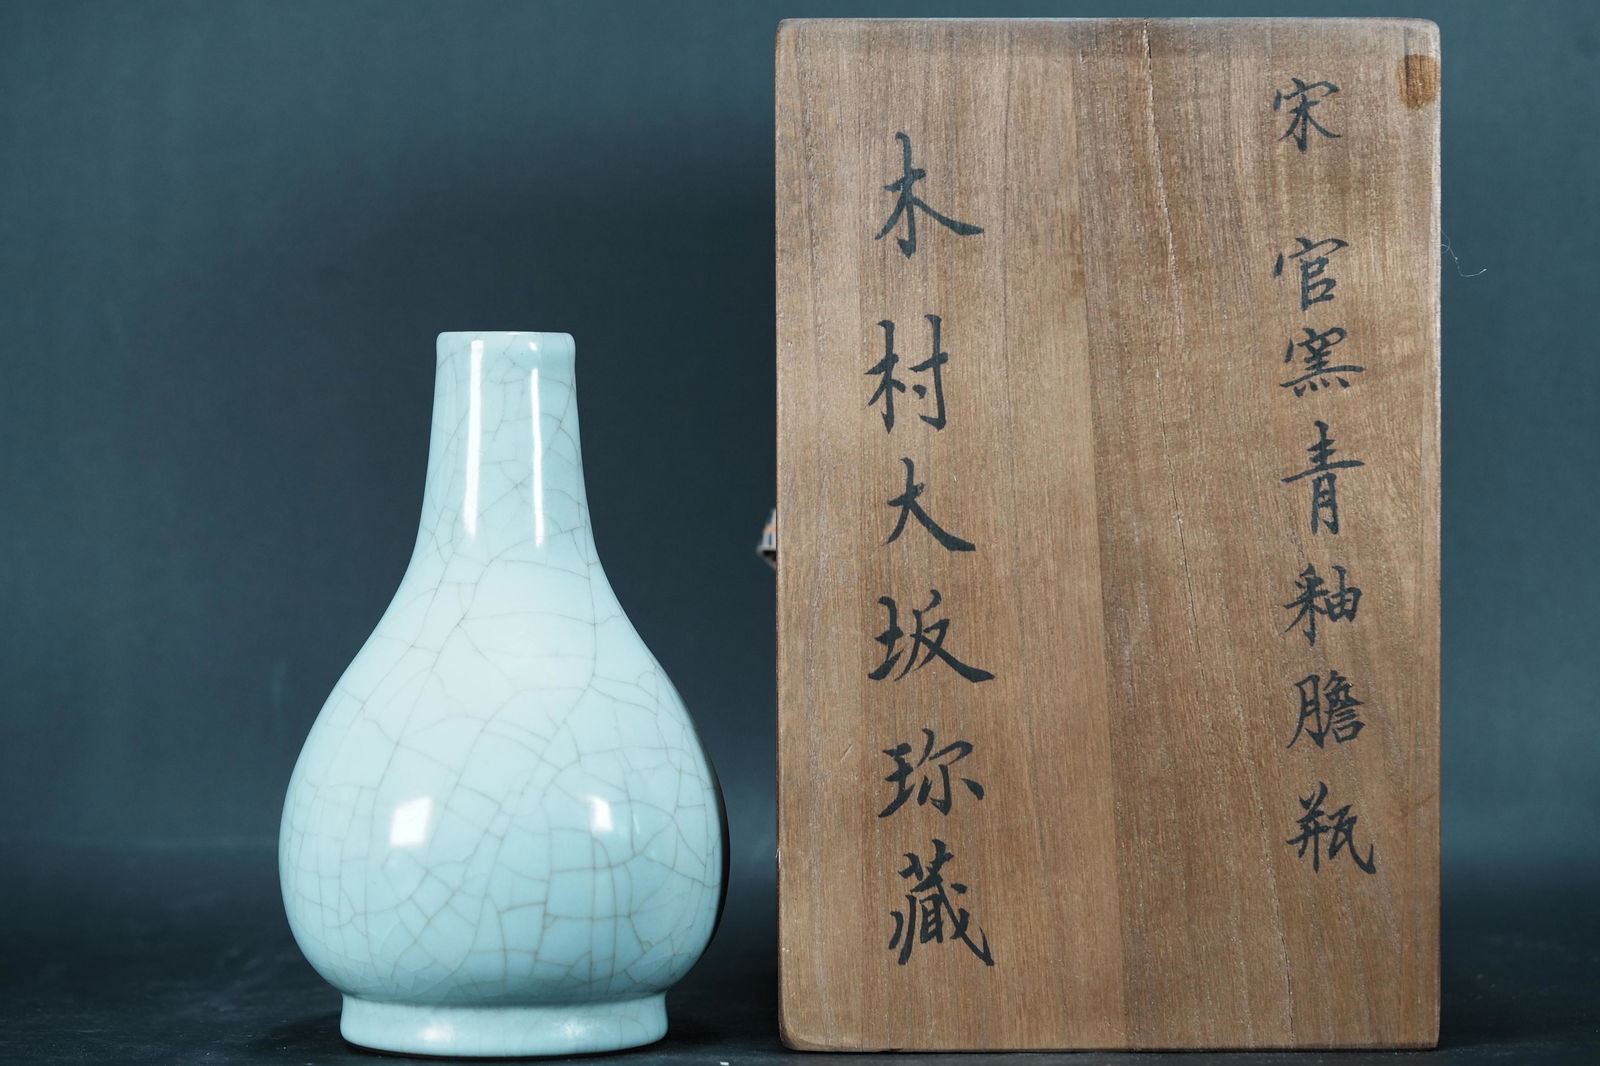 宋 官窯青釉膽瓶
木村大坂珎藏